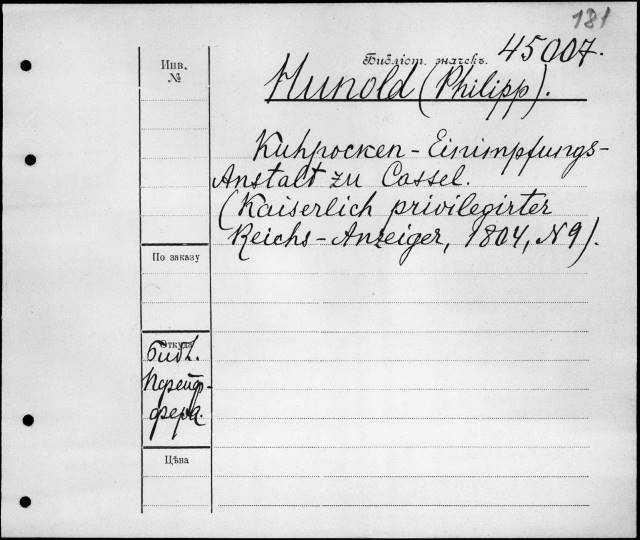 181
Библіот. значекъ. 45007.
Инв.
№
Hunold (Philipp).
Kuhpocken - Einimpfungs-
Anstalt zu Cassel.
(Kaiserlich privilegirter
Reichs-Anzeiger, 1804, N 9).
По заказу
Откуда
Библ.
Пфейф-
фера.
Цѣна